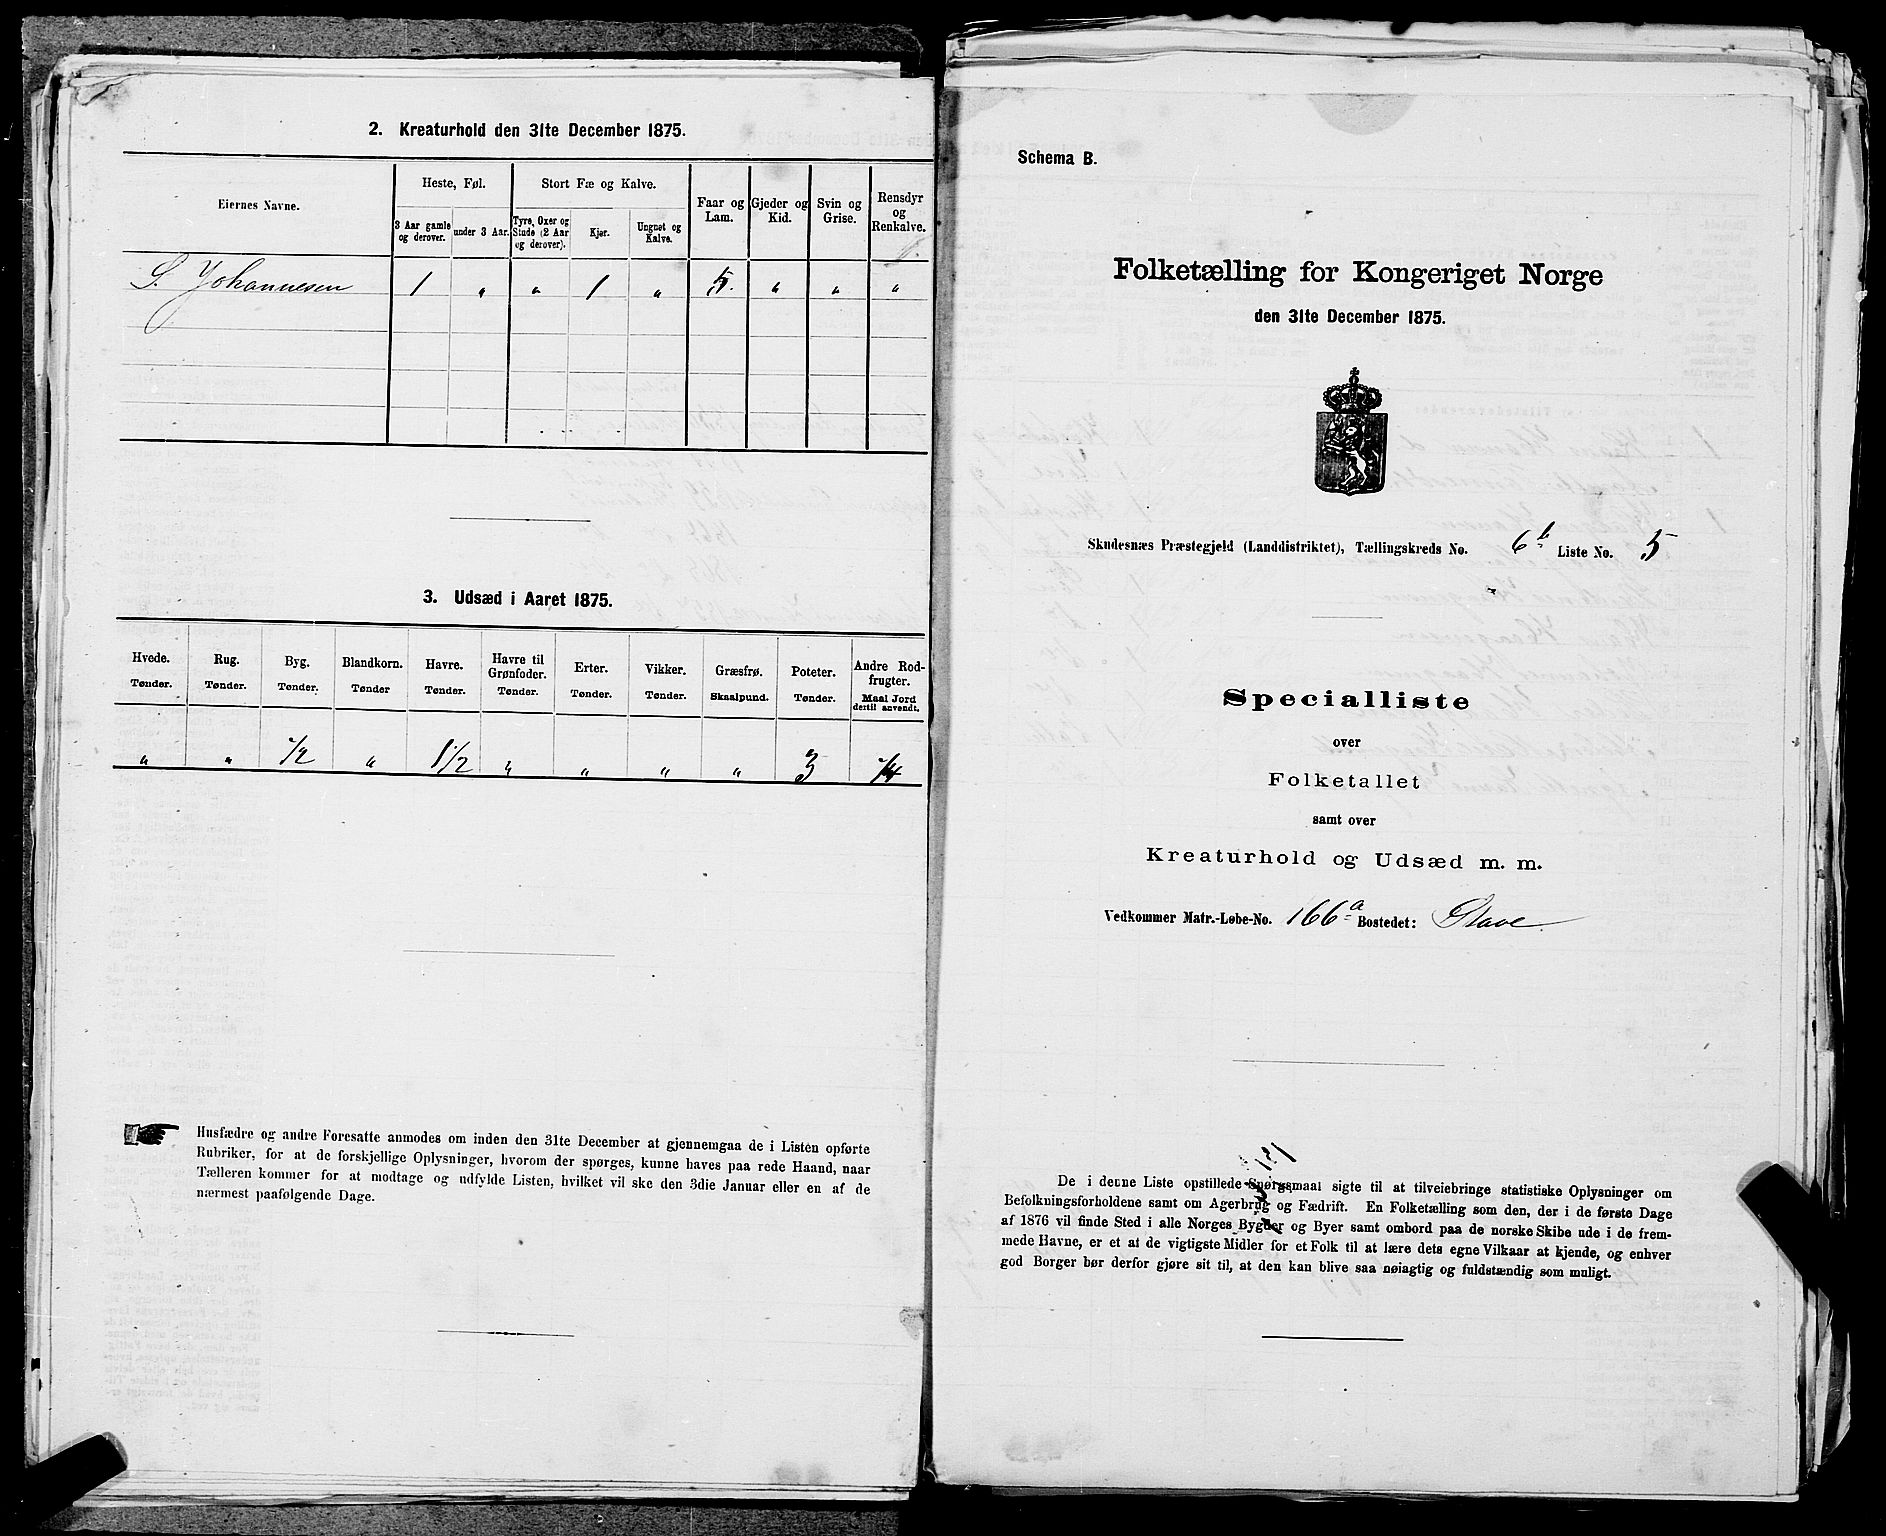 2. Kreaturhold den 31te December 1875.
Eiernes Navne.
Heste, Føl.
Stort Fæ og Kalve.
Faar og Lam.
Gjeder og Kid.
Svin og Grise.
Rensdyr og Renkalve.
3 Aar gamle og derover.
under 3 Aar.
Tyre, Oxer og Stude (2 Aar og derover).
Kjør.
Ungnøt og Kalve.
S. Johannesen 1 " " 1 " 5. " " "
3. Udsæd i Aaret 1875.
Hvede. Rug. Byg. Blandkorn. Havre. Havre til Grønfoder. Erter. Vikker. Græsfrø. Poteter. Andre Rodfrugter.
Tønder. Tønder. Tønder. Tønder Tønder. Tønder. Tønder. Tønder. Skaalpund. Tønder. Maal Jord dertil anvendt.
" " 1/2 " 1 1/2 " " " " 3 1/4
Husfædre og andre Foresatte anmodes om inden den 31te December at gjennemgaa de i Listen opførte
Rubriker, for at de forskjellige Oplysninger, hvorom der spørges, kunne haves paa rede Haand, naar
Tælleren kommer for at modtage og udfylde Listen, hvilket vil ske den 3die Januar eller en af de
nærmest paafølgende Dage.
Schema B.
Folketælling for Kongeriget Norge
den 31te December 1875.
Skudesnæs Præstegjeld (Landdistriktet), Tællingskreds No. 6b Liste No. 5
Specialliste
over
Folketallet
samt over
Kreaturhold og Udsæd m. m.
Vedkommer Matr.-Løbe-No. 166a Bostedet: Stave.
De i denne Liste opstillede Spørgsmaal sigte til at tilveiebringe statistiske Oplysninger om
Befolkningsforholdene samt om Agerbrug og Fædrift. En Folketælling som den, der i de første Dage
af 1876 vil finde Sted i alle Norges Bygder og Byer samt ombord paa de norske Skibe ude i de frem-
mede Havne, er et at de vigtigste Midler for et Folk til at lære dets egne Vilkaar at kjende, og enhver
god Borger bør derfor gjøre sit til, at den kan blive saa nøiagtig og fuldstændig som muligt.